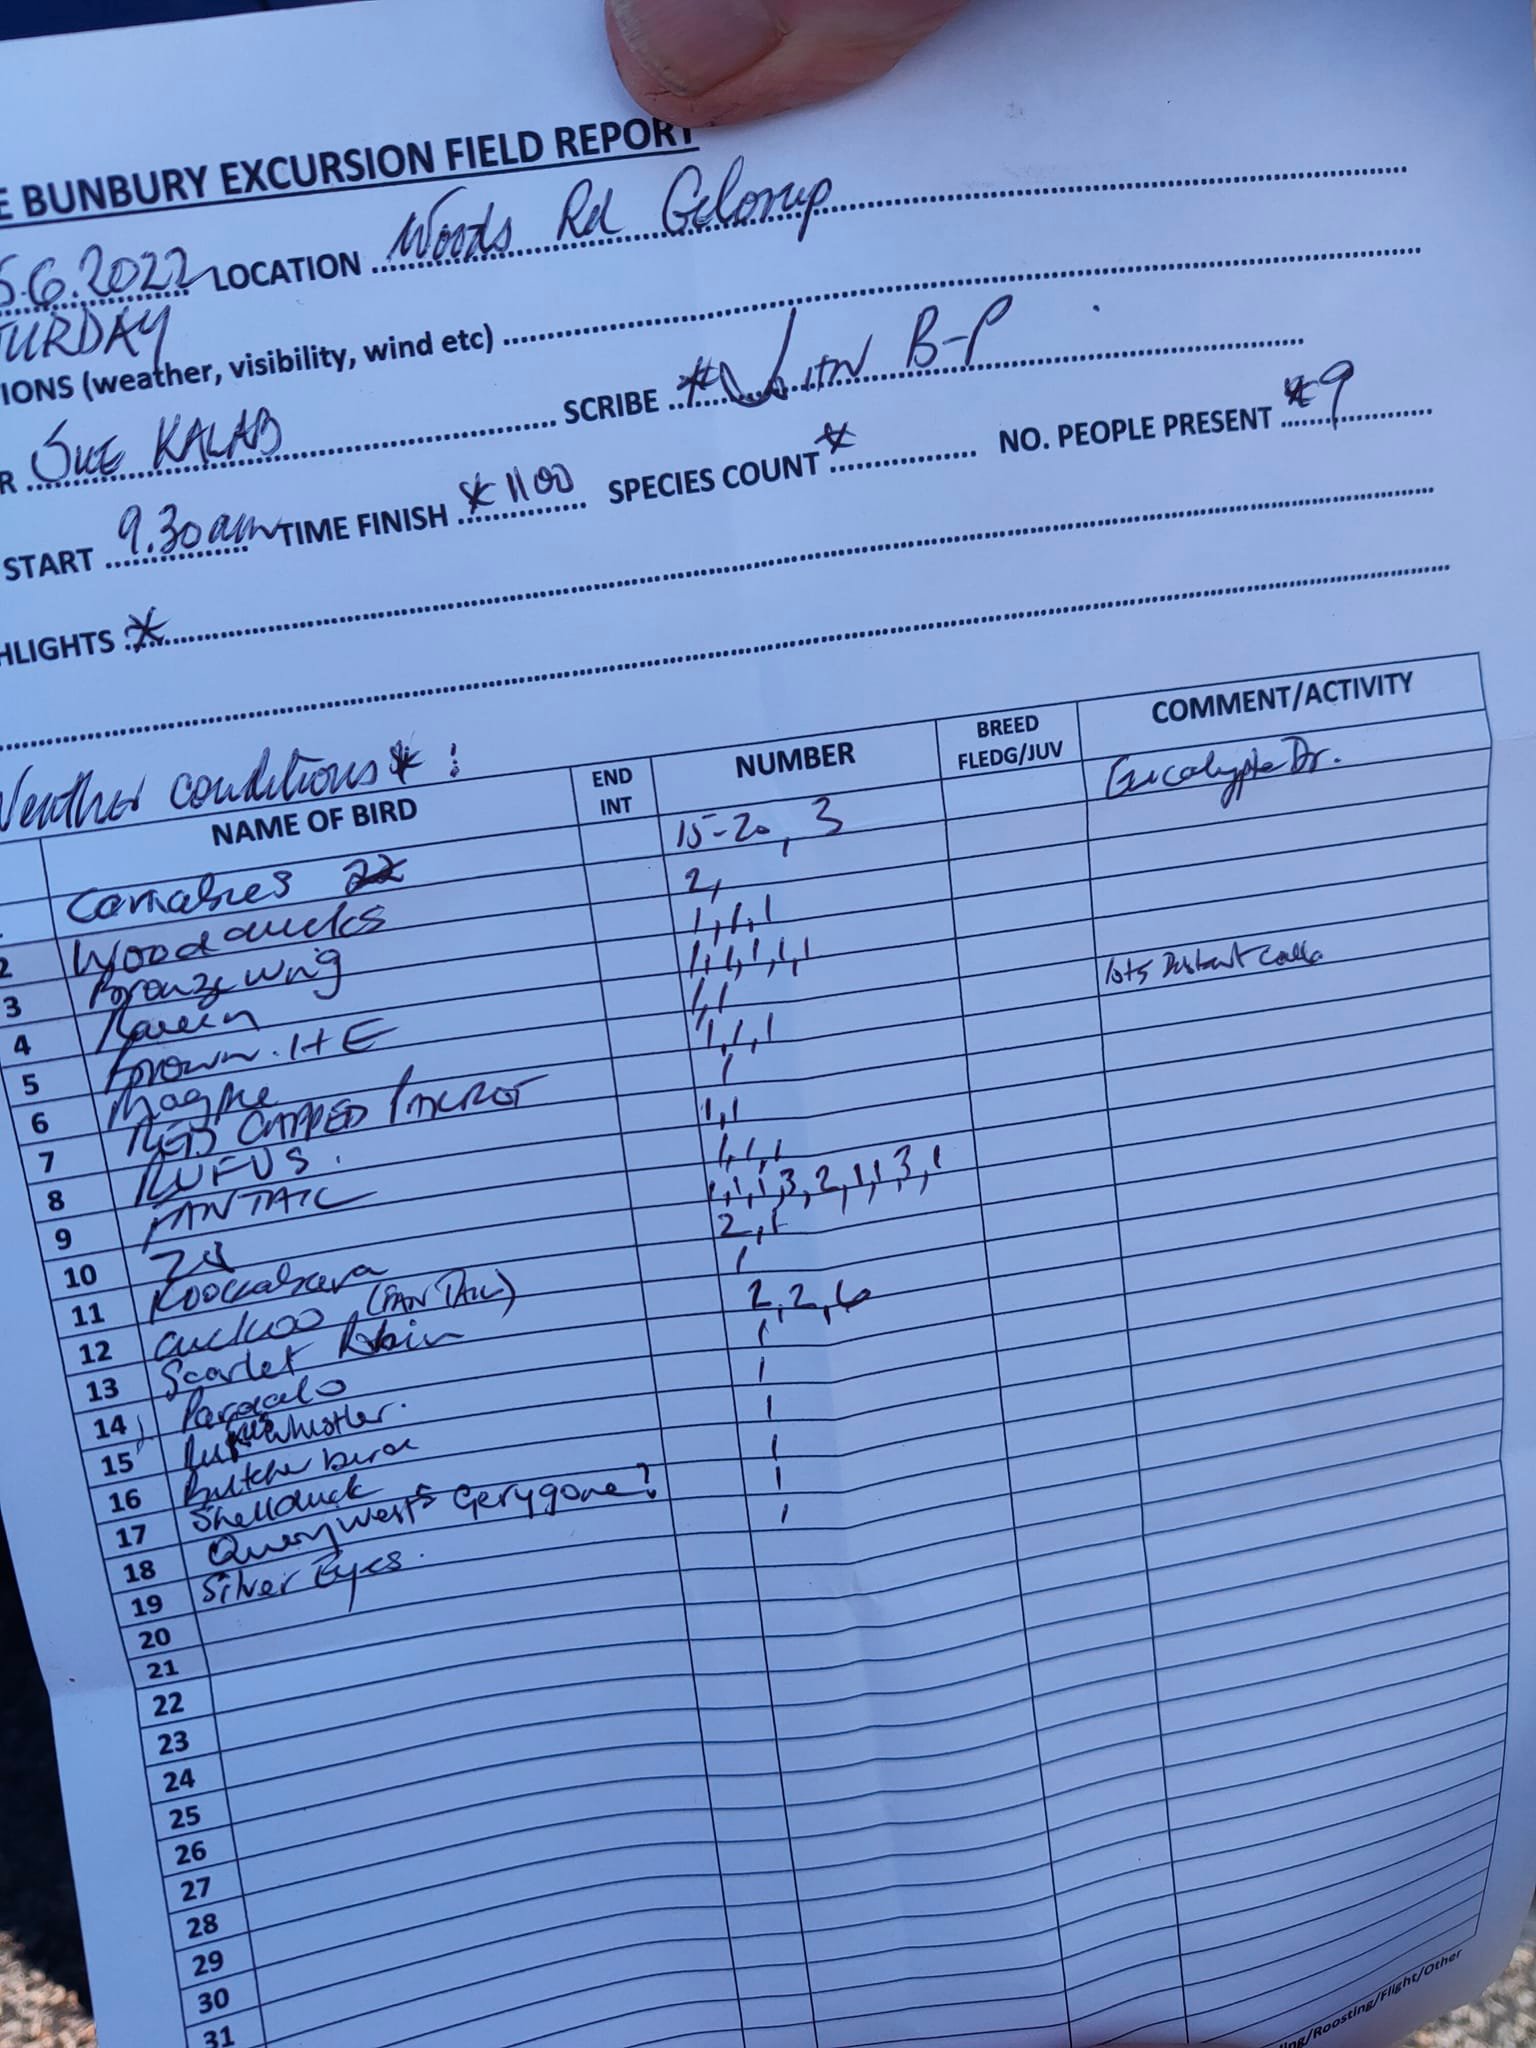 E BUNBURY EXCURSION FIELD REPORT
5.6.2022 LOCATION Woods Rd Gelorup
TURDAY
IONS (weather, visibility, wind etc)
R SUE KALAB SCRIBE * B-P
START 9.30am TIME FINISH * 1100 SPECIES COUNT * NO. PEOPLE PRESENT * 9
HLIGHTS *
Weather conditions * :
NAME OF BIRD END INT NUMBER BREED FLEDG/JUV COMMENT/ACTIVITY
Carnabies 15-20, 3 Eucalypte Dr.
2 Wood ducks 2,
3 Bronze wing 1,1,1
4 Raven 1,1,1,1,1 lots Distant calls
5 Brown H E 1,1
6 Magpie 1,1,1
7 RED CAPPED PARROT 1
8 RUFUS. 1,1
9 FANTAIL 1,1,1
10 28 1,1,1,3,2,1,1,3,1
11 Kookabura 2,1
12 Cuckoo (FAN TAIL) 1
13 Scarlet Robin 2,2,6
14 Pardalo 1
15 Rufus Whistler. 1
16 Butcher bird 1
17 Shellduck 1
18 Query West's Gerygone? 1
19 Silver Eyes. 1
20
21
22
23
24
25
26
27
28
29
30
31
ing/Roosting/Flight/Other